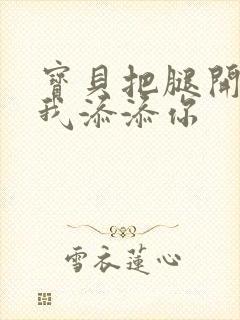 寶貝把腿開
我添添你
雪衣蓮心